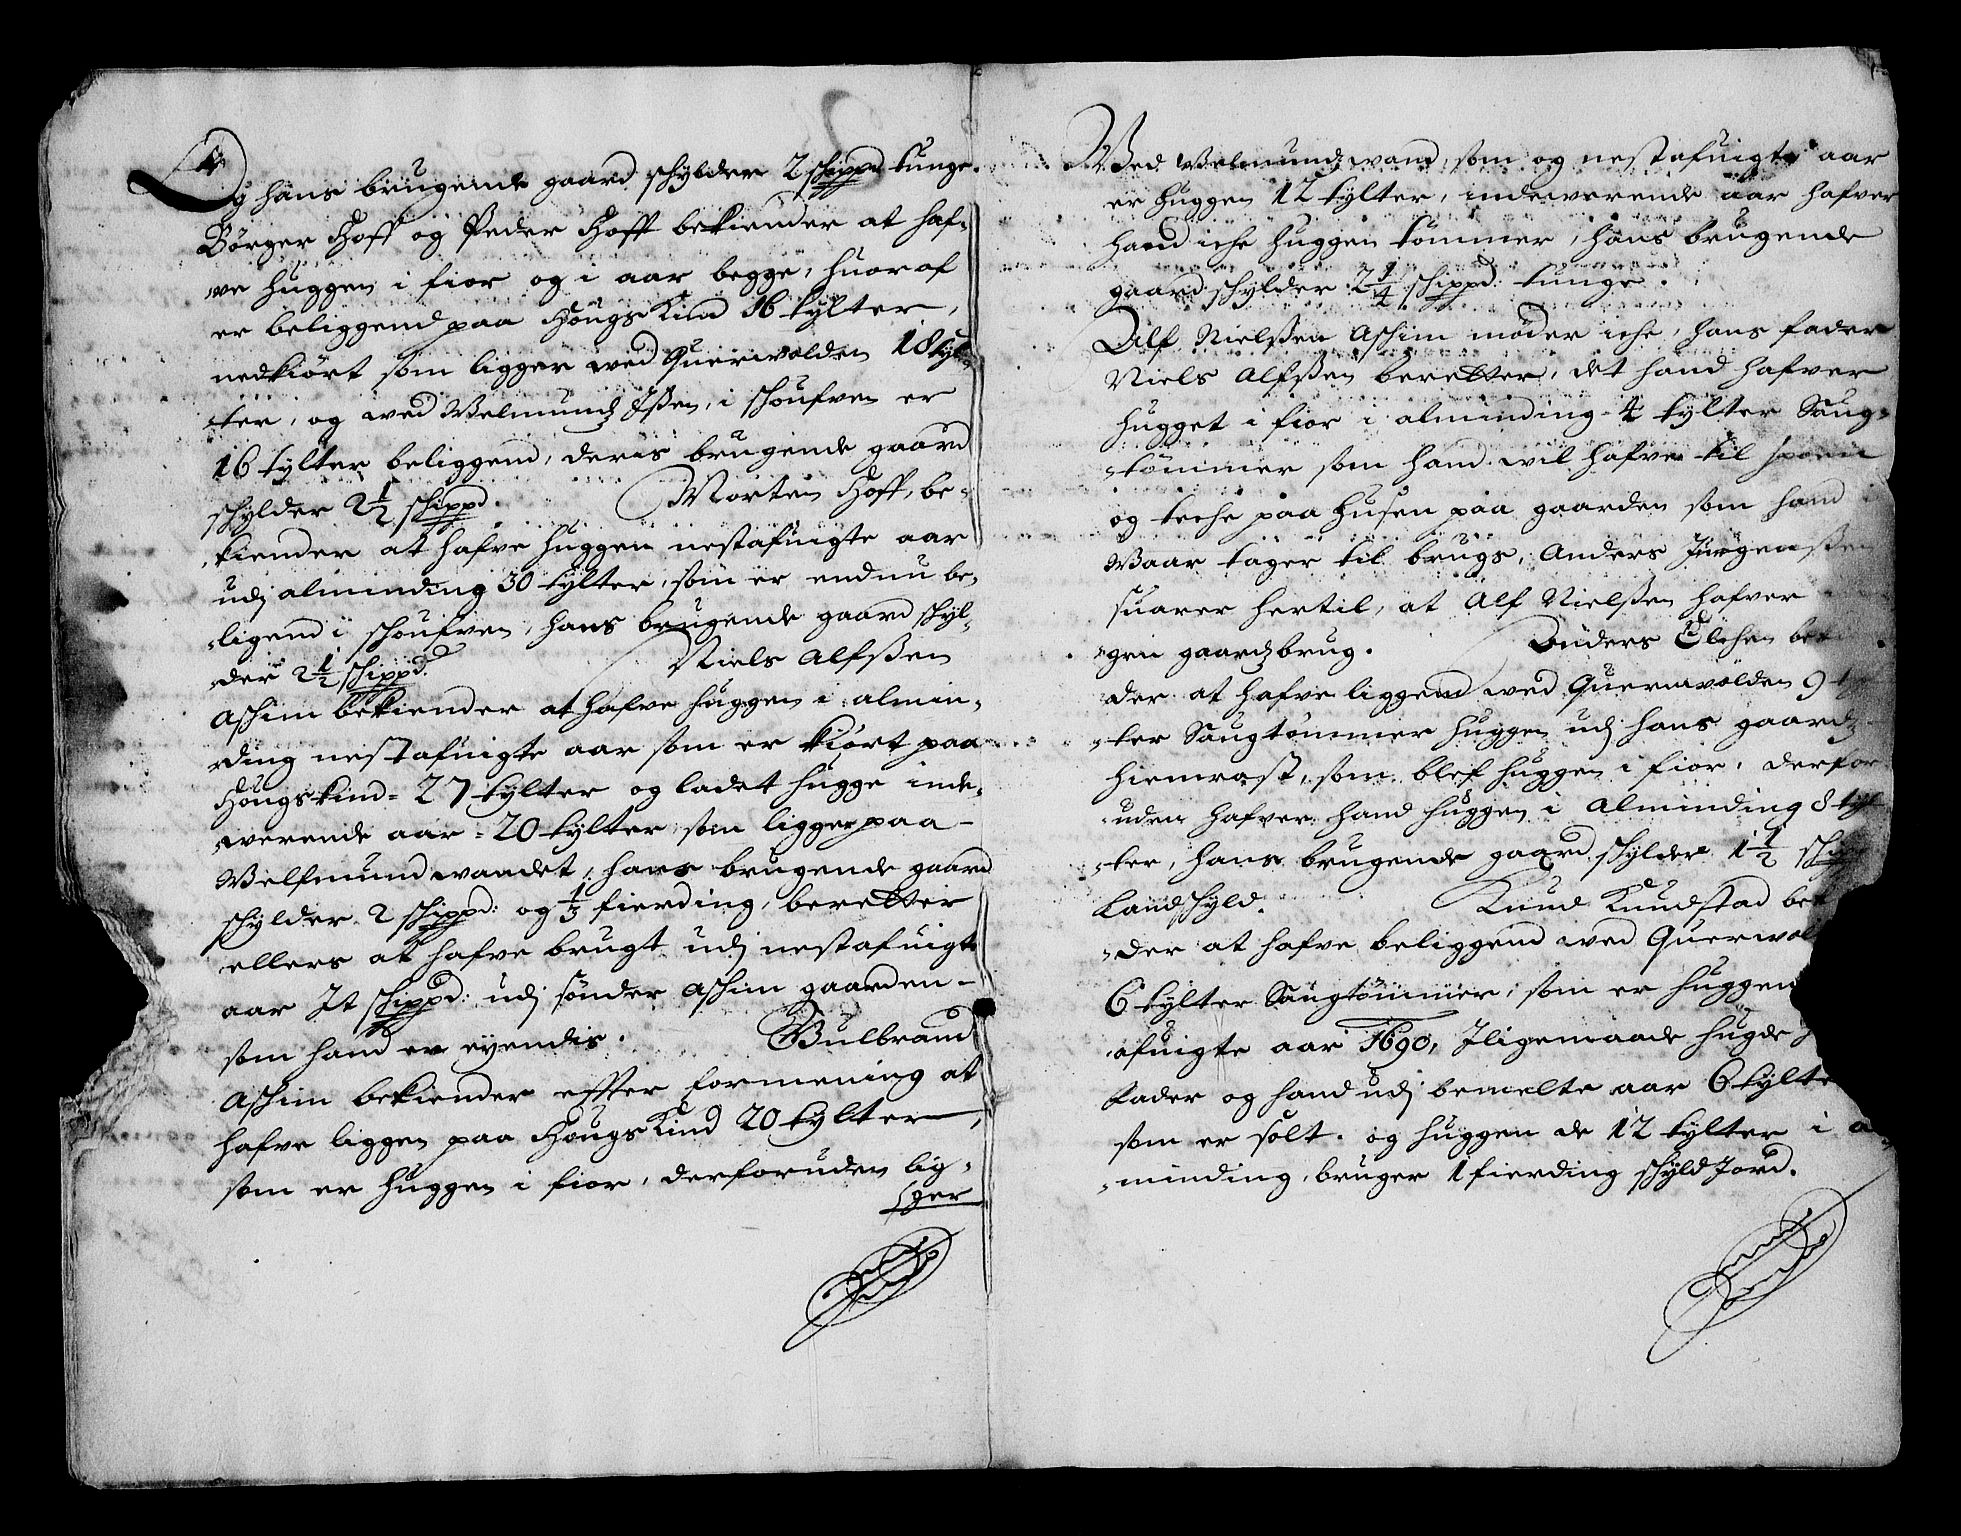 Og hans brugende gaard schylder 2 schippd tunge.
Børger Hoff og Peder Hoff bekiender at haf-
ve huggen i fior og i aar begge, huoraf
er beliggend paa Hougs Kind 16 tylter,
nedkiørt som ligger ved Quernvolden 18 tyl-
ter, og ved Velmund, i schoufven er
16 tylter beliggend, deris brugende gaard
schylder 2½ schippd. Morten Hoff, be-
kiender at hafve huggen nestafuigte aar
udj alminding 30 tylter, som er endnu be-
ligend i schoufven, hans brugende gaard schyl-
der 2½ schippd. Niels Alfßen
Aschim bekiender at hafve huggen i almin-
ding nestafuigte aar som er kiørt paa
Hougskind = 27 tylter og ladet hugge inde-
werende aar = 20 tylter som ligger paa
Velfmund wandet, hans brugende gaard
schylder 2 schippd: og ⅓ fierding, beretter
ellers at hafve brugt udj nestafuigte
aar It schippd: udj sønder Aschim gaarden
som hand er eyendis. Gulbrand
Aschim bekiender effter formening at
hafve liggen paa Hougs Kind 20 tylter,
som er huggen i fior, derforuden lig-
ger
Ved Velmund wand, som og nestafuigte aar
er huggen 12 tylter, indewerende aar hafver
hand iche huggen tømmer, hans brugende
gaard schylder 2¼ schippd: tunge.
Alf Nielßen Aschim møder iche, hans fader
Niels Alfßen beretter, det hand hafver
hugget i fior i alminding 4 tylter Saug-
tømmer som hand wil hafve til
og teche paa husen paa gaarden som hand i
Waar tager til brugs, Anders Jørgenßen
suarer hertil, at Alf Nielßen hafver
gen gaardz brug. Anders Elchen beki
der at hafve liggend ved Quernvolden 9 tyl
ter Saugtømmer huggen udj hans gaardz
hiemrast, som blef huggen i fior, derfor
uden hafver hand huggen i Alminding 8 tyl
ter, hans brugende gaard schylder 1½ schip
Landschyld. Knud Knudstad bek
der at hafve beliggend ved Quernvol
6 tylter Saugtømmer, som er huggen
afuigte aar 1690, Iligemaade hugde h
fader og hand udj bemelte aar 6 tylte
som er solt. og huggen de 12 tylter i a
minding, bruger 1 fierding schyld Jord.